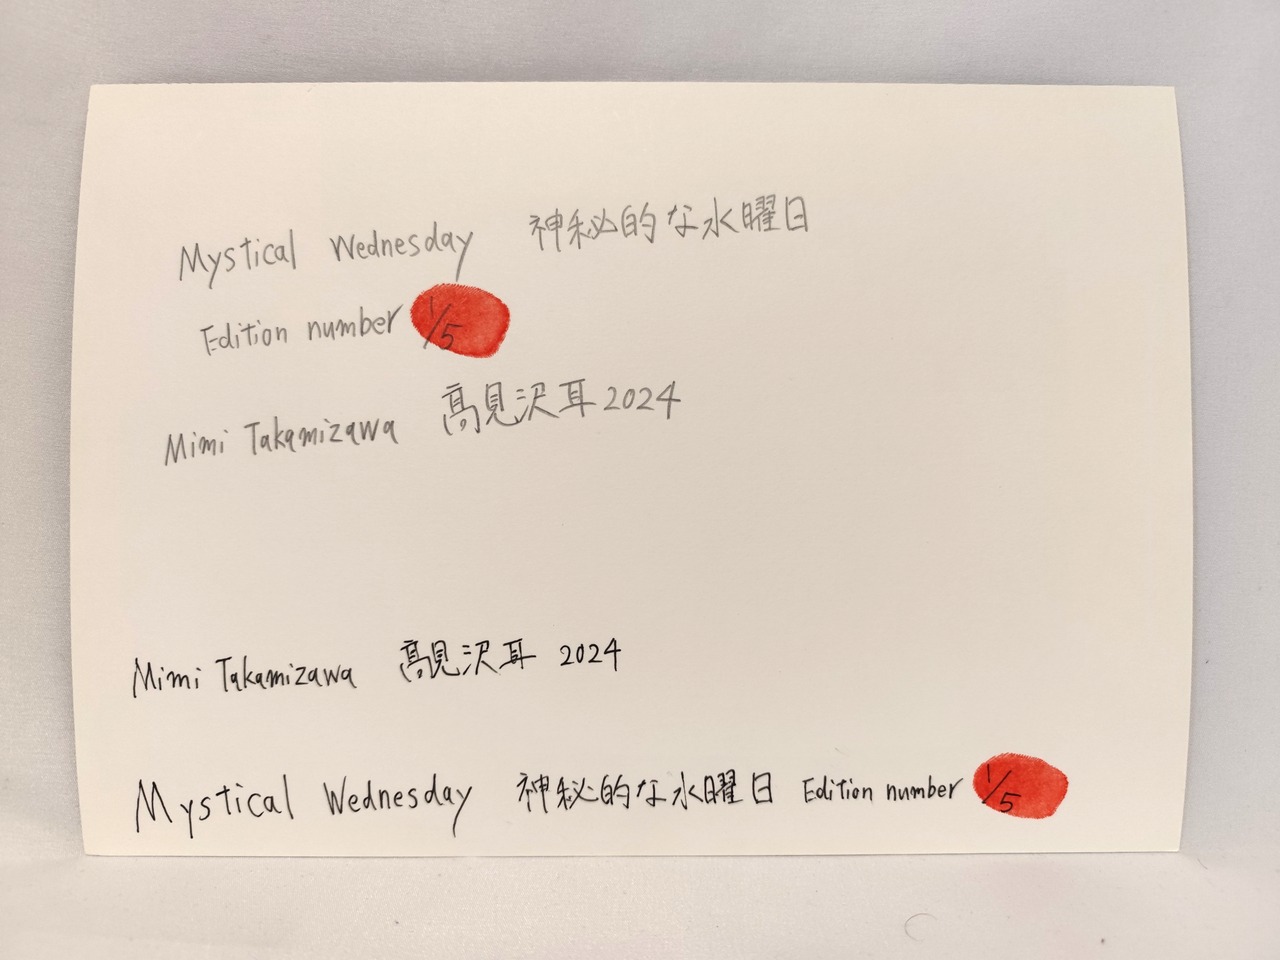 Mystical Wednesday 神秘的な水曜日
Edition number 1/5
Mimi Takamizawa 髙見沢耳 2024
Mimi Takamizawa 髙見沢耳 2024
Mystical Wednesday 神秘的な水曜日 Edition number 1/5